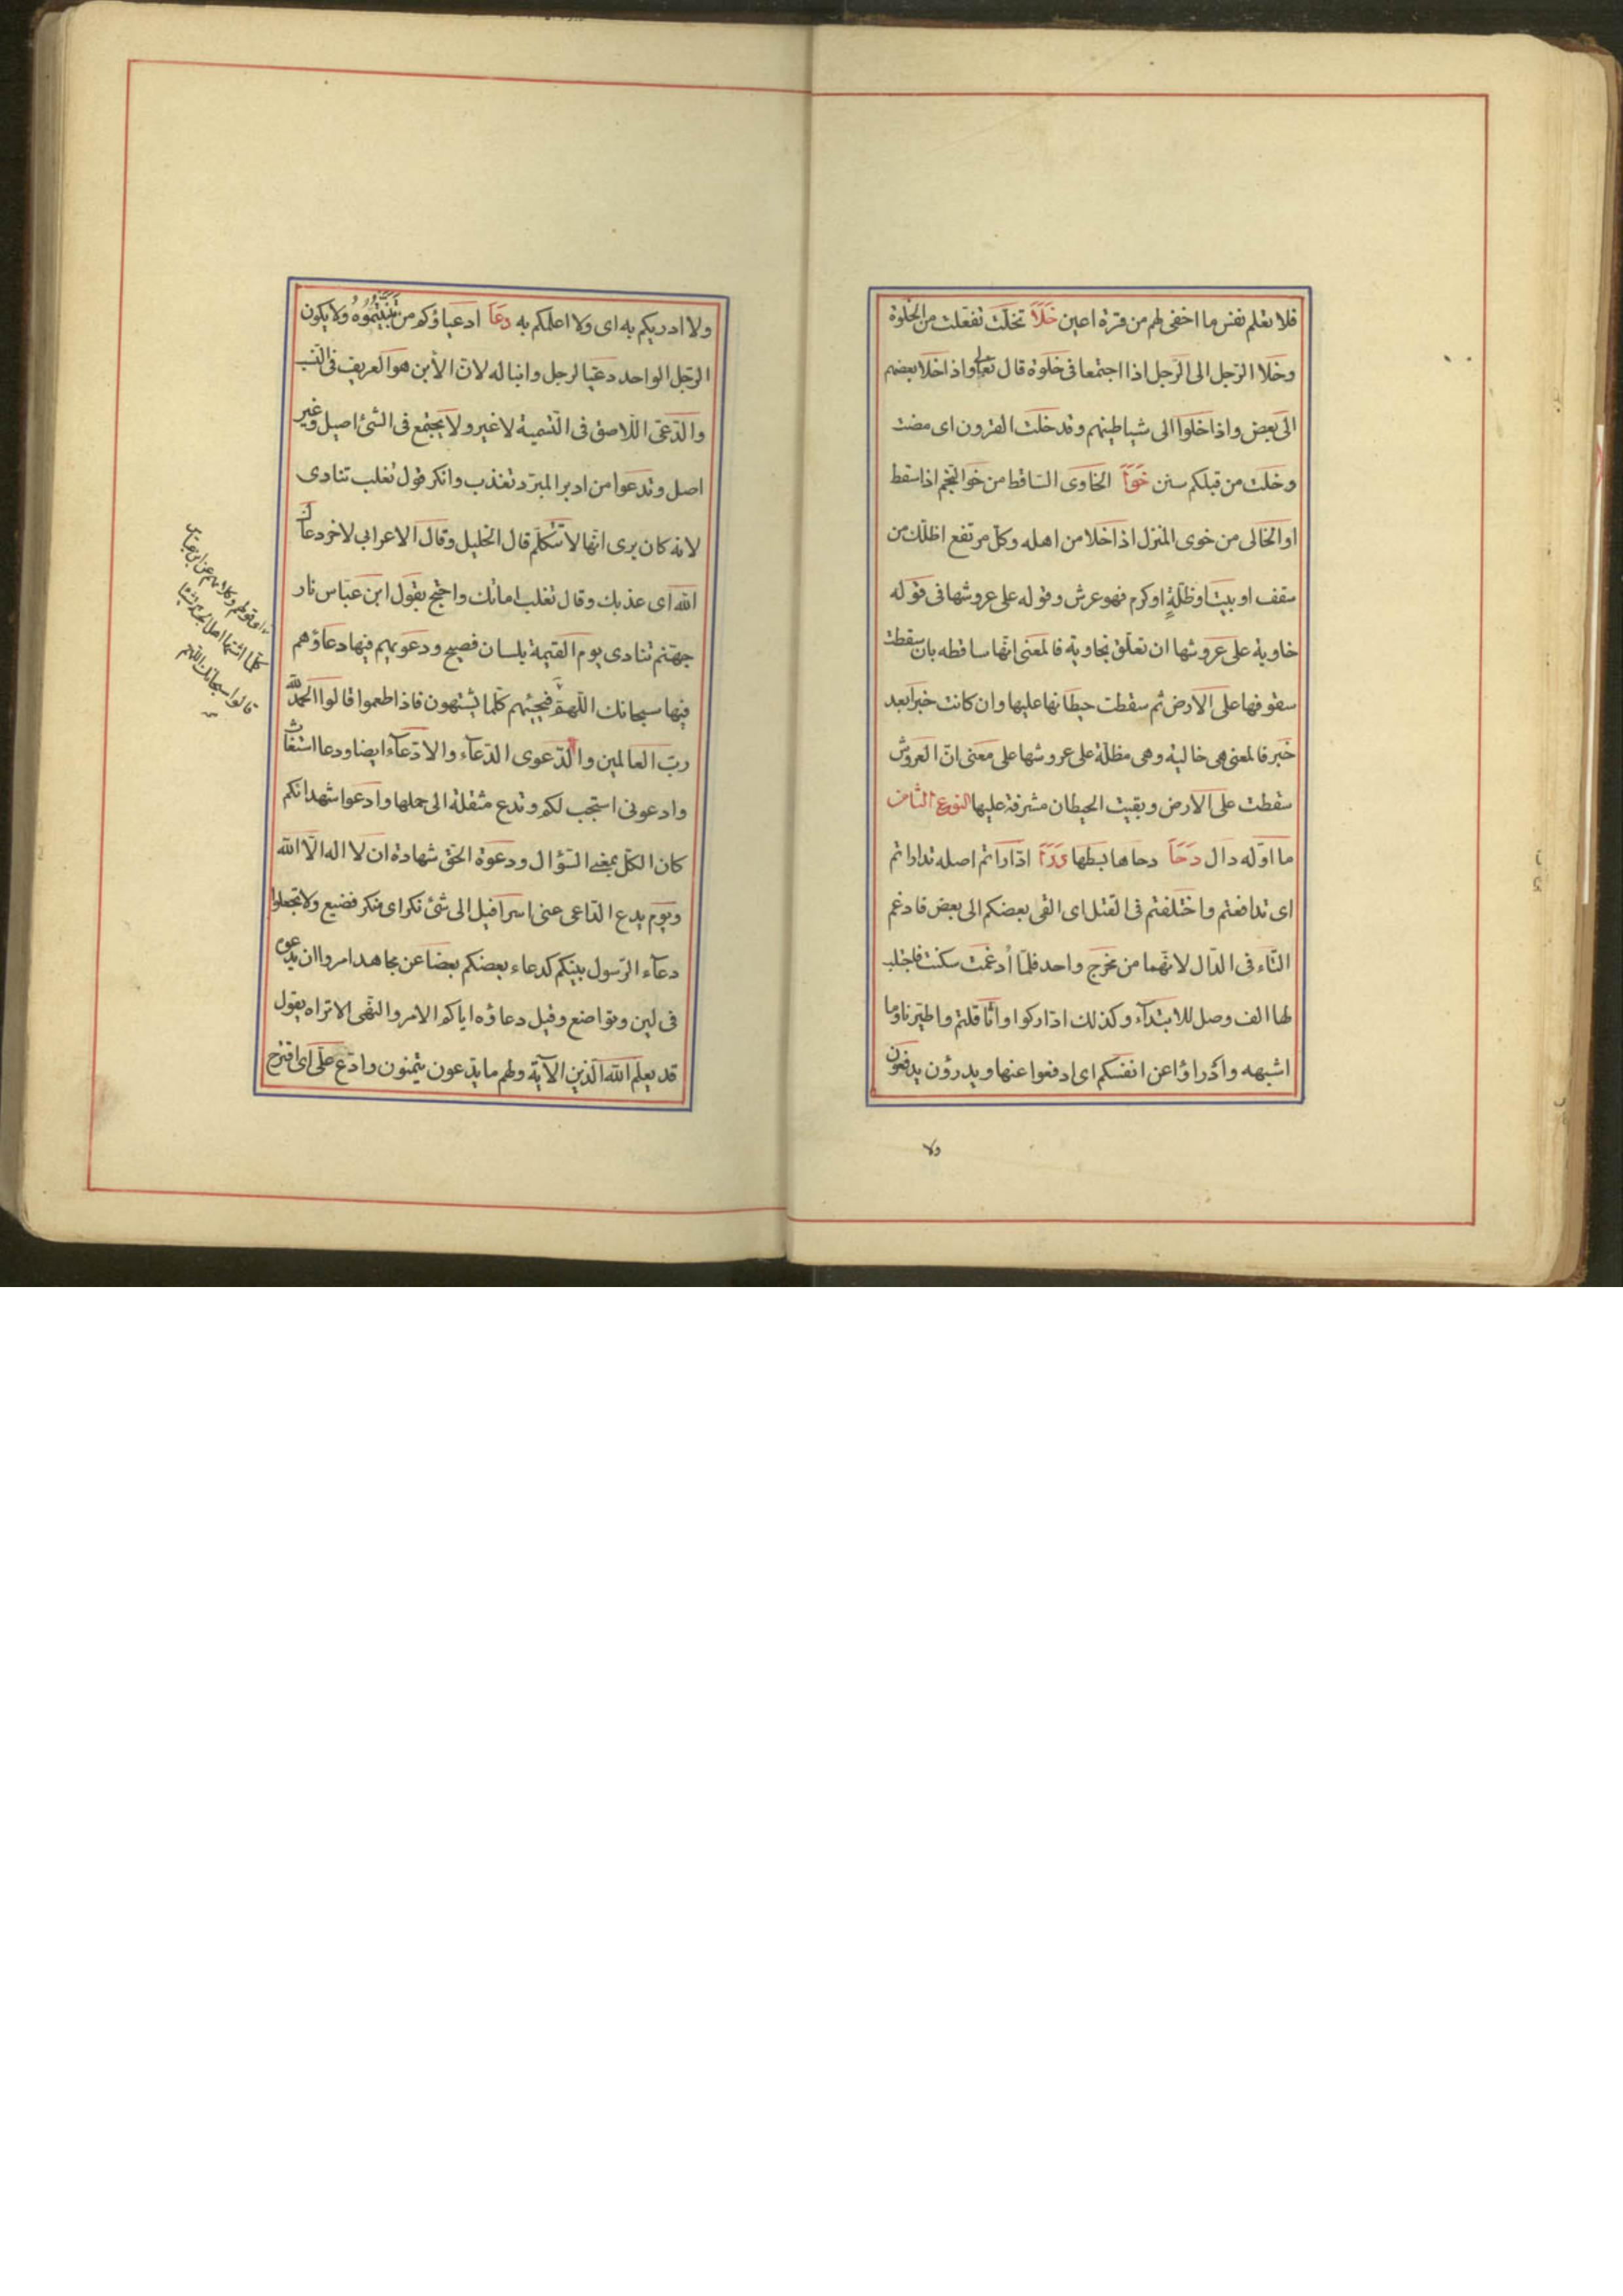 فلا تعلم نفس ما اخفى لهم من قرة اعين خَلَاَ تخلّت تفعلت من الخلوة
وخلا الرّجل الى الرّجل اذا اجتمعا فى خلوة قال تعالى واذا خلا بعضهم
الى بعض واذا خلوا الى شياطينهم وقد خلت القرون اى مضت
وخلت من قبلكم سنن خَوَاَ الخاوى السّاقط من خوا النّجم اذا سقط
او الخالى من خوى المنزل اذا خلا من اهله وكلّ مرتفع اظلّك من
سقف او بيت او ظلّةٍ او كرم فهو عرش وقوله على عروشها فى قوله
خاوية على عروشها ان تعلّق بخاوية فالمعنى انّها ساقطه بان سقطت
سقوفها على الارض ثم سقطت حيطانها عليها وان كانت خبرا بعد
خبر فالمعنى هى خالية وهى مظلّة على عروشها على معنى انّ العروش
سقطت على الارض وبقيت الحيطان مشرفة عليها النوع الثامن
ما اوّله دال دَحَاَ دحاها بسطها دَرَاَ ادّاراتم اصله تداراتم
اى تدافعتم واختلفتم فى القتل اى القى بعضكم الى بعض فادغم
التّاء فى الدّال لانّهما من مخرج واحد فلمّا اُدغمت سكنت فاجتلب
لها الف وصل للابتدآء وكذلك ادّاركوا واثّاقلتم واطيّرنا وما
اشبهه وادراؤا عن انفسكم اى ادفعوا عنها ويدرؤن يدفعون
ولا
ولا ادريكم به اى ولا اعلمكم به دعَاَ ادعياؤكم من تبنّيتموه ولا يكون
الرّجل الواحد دعيّا لرجل وابنا له لانّ الأبن هو العريق فى النّسب
والدّعىّ اللّاصق فى التّسمية لا غير ولا يجتمع فى الشّئ اصيل وغير
اصل وتدعوا من ادبر المبرّد تعذب وانكر قول ثعلب تنادى
لانه كان يرى انّها لا تتكلّم قال الخليل وقال الاعرابى لاخر دعاك
اللّه اى عذبك وقال ثعلب اماتك واحتجّ بقول ابن عبّاس نار
جهنّم تنادى يوم القيمة بلسان فصيح ودعويهم فيها دعاؤهم
فيها سبحانك اللّهمّ فيجيئهم كلّما يشتهون فاذا طعموا قالوا الحمد للّه
ربّ العالمين والدّعوى الدّعآء والادّعآء ايضا ودعا استغاث
وادعونى استجب لكم وتدع مثقلة الى حملها وادعوا شهدائكم
كان الكلّ بمعنى السّؤال ودعوة الحقّ شهادة ان لا اله الّا اللّه
ويوم يدع الدّاعى عنى اسرافيل الى شئ نكر اى منكر فضيع ولا تجعلوا
دعآء الرّسول بينكم كدعاء بعضكم بعضا عن مجاهد امروا ان يدعوه
فى لين وتواضع وقيل دعاؤه اياكم الامر والنّهى الا تراه يقول
قد يعلم اللّه الّذين الآية ولهم ما يدّعون يتمنون وادّع علىّ اى اقترح
اى قولهم وكلامهم عن ابن عباس
كلّما اشتها اهل الجنة شيئا
قالوا سبحانك اللهم